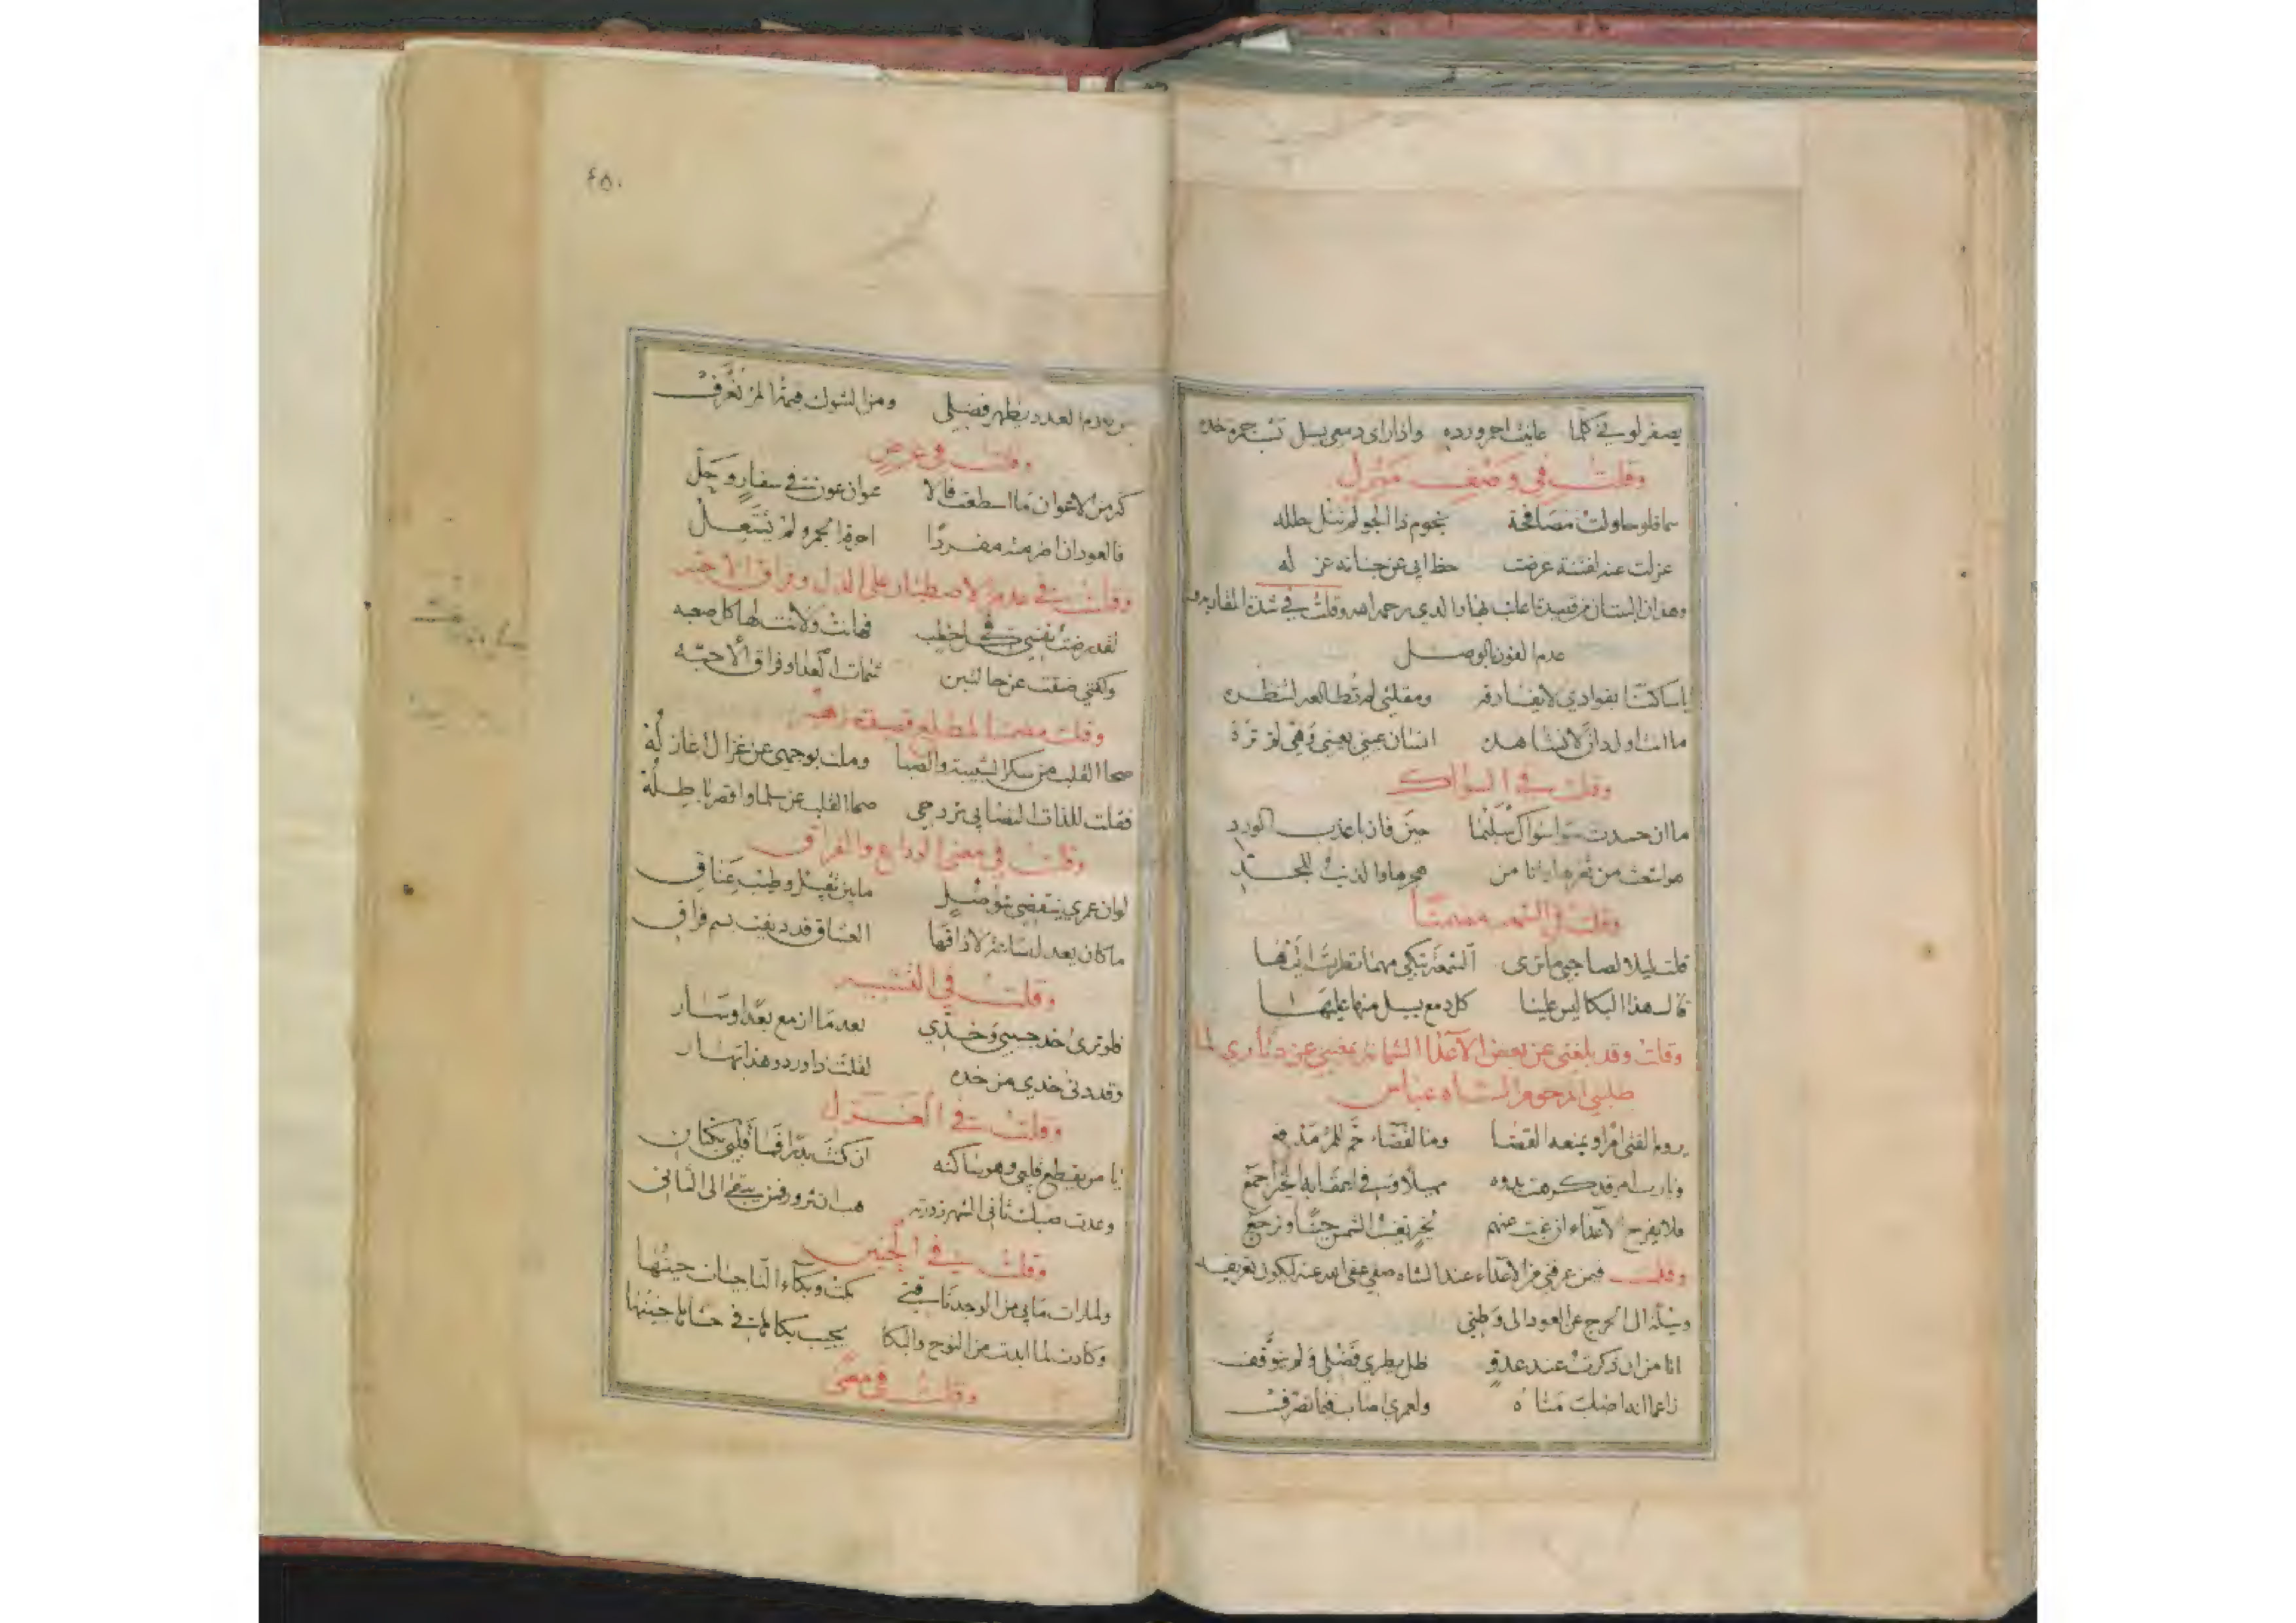 يصفر لوني كلما عاينت احمر ورده واذا راى دمعي يسل تشب جمرة خده
وقلت في وصف منزل
سما فلو حاولت مصافحة نجوم ذا الجو لم تنل طلله
عزلت عنه لفتنة عرضت حظ ابى عن جنانه عزله
وهذان البيتان من قصيدة اعاتب بها والدي رحمه الله وقلت في شدة المقاربة مع
عدم الفوز بالوصل
يا ساكنا بفوادي لا يفارقه ومقلتي لم تطالعه لتنظره
ما انت اول دان لا نشاهده انسان عيني بعيني وهي لم تره
وقلت في السواك
ما ان حسدت سوا سواك سليمى حين فاز باعذب الورد
هو امتعت من ثغرها وانا من هجرها والذنب للجد
وقلت في الشمعة مضمنا
قلت ليلا لصاحبي ما ترى الشمعة تبكي مهما نظرت اليها
قال هذا البكا ليس علينا كل دمع يسيل منها عليها
وقلت وقد بلغني عن بعض الاعداء الشماتة بغيبي عن دياري لما
طلبني المرحوم الشاه عباس
يروم الفتى امرا ويمنعه القضا وما لقضاء حم للمرء مدفع
ويا رب امر قد كرهت بدوه مهلا وفي اعقابه الخير اجمع
فلا يفرح الاعداء ان غبت عنهم فخير تغيب الشمس حينا وترجع
وقلت فيمن عرفني من الاعداء عند الشاه صفي عفى الله عنه لكون تعريفه
وسيلة الى الحرج عن العود الى وطني
انا من ان ذكرت عند عدو ظل يطري فضلي ولم يتوقف
زاعما انه اضلت مناه ولعمري اصاب فيما تصرف
٤٥٠
من يدم العدد يظهر فضلي ومن الشوك قيمة المرء تعرف
وقلت في غرض
كثر من الاعوان ما اسطعت فالا عوان عون في سفار وحل
فالعود ان اضرمته مفردا احرقه الجمر ولم يشتعل
وقلت في عدم الاصطبار على الذل وفراق الاحبه
لقد رضت نفسي في كل خطب فهانت ولانت لها كل صعبه
ولكنني ضقت عن حالتين شمات العدا وفراق الاحبه
وقلت مضمنا لمطلع قصيدة زهير
صحا القلب من سكر الشبيبة والصبا وملت بوجهي عن غزال اغازله
فقلت للذات التصابي تزحزحي صحا القلب عن سلما واقصر باطله
وقلت في معنى الوداع والفراق
لو ان عمري ينقضي بتواصل ما بين تقبيل وطيب عناق
ما كان يعدل ساعة لا ذاقها العشاق قد ديفت بسم فراق
وقلت في التشبيه
فلو ترى خد حبيبي وخدي بعد ما ازمع بعدا وسار
وقد دنى خدي من خده لقلت ذا ورد وهذا بهار
وقلت في الغزل
يا من يقطع قلبي وهو ساكنه ان كنت بدرا فما قلبي بكتان
وعدت صبك ثاني الشهر زورته هب ان تزور فمن يبقى الى الثاني
وقلت في الحنين
ولما رات ما بي من الوجد ناقتي بكت وبكاء الناجيات حنينها
وكادت لما ابدت من النوح والبكا يجيب بكاها في حشاها جنينها
وقلت في معنى